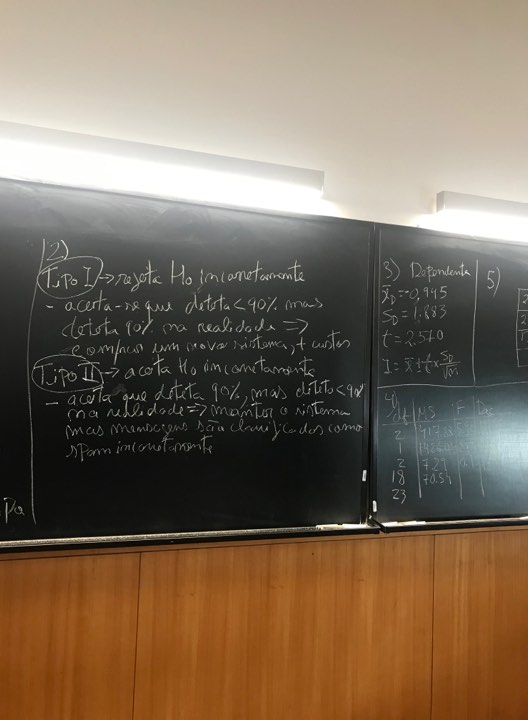 2)
Tipo I → rejeita Ho incorretamente
- aceita-se que deteta < 90% mas
deteta 90% na realidade ⇒
comprar um novo sistema, + custos
Tipo II → aceita Ho incorretamente
- aceita que deteta 90%, mas deteta < 90%
na realidade ⇒ mantêr o sistema
mas mensagens são classificados como
spam incorretamente
3) Dependente
x̄D = 0,945
SD = 1,883
t = 2.570
I = x̄ ± t × SD/√n
5)
4)
MS F
2
1
2 7.27
18 70.57
23